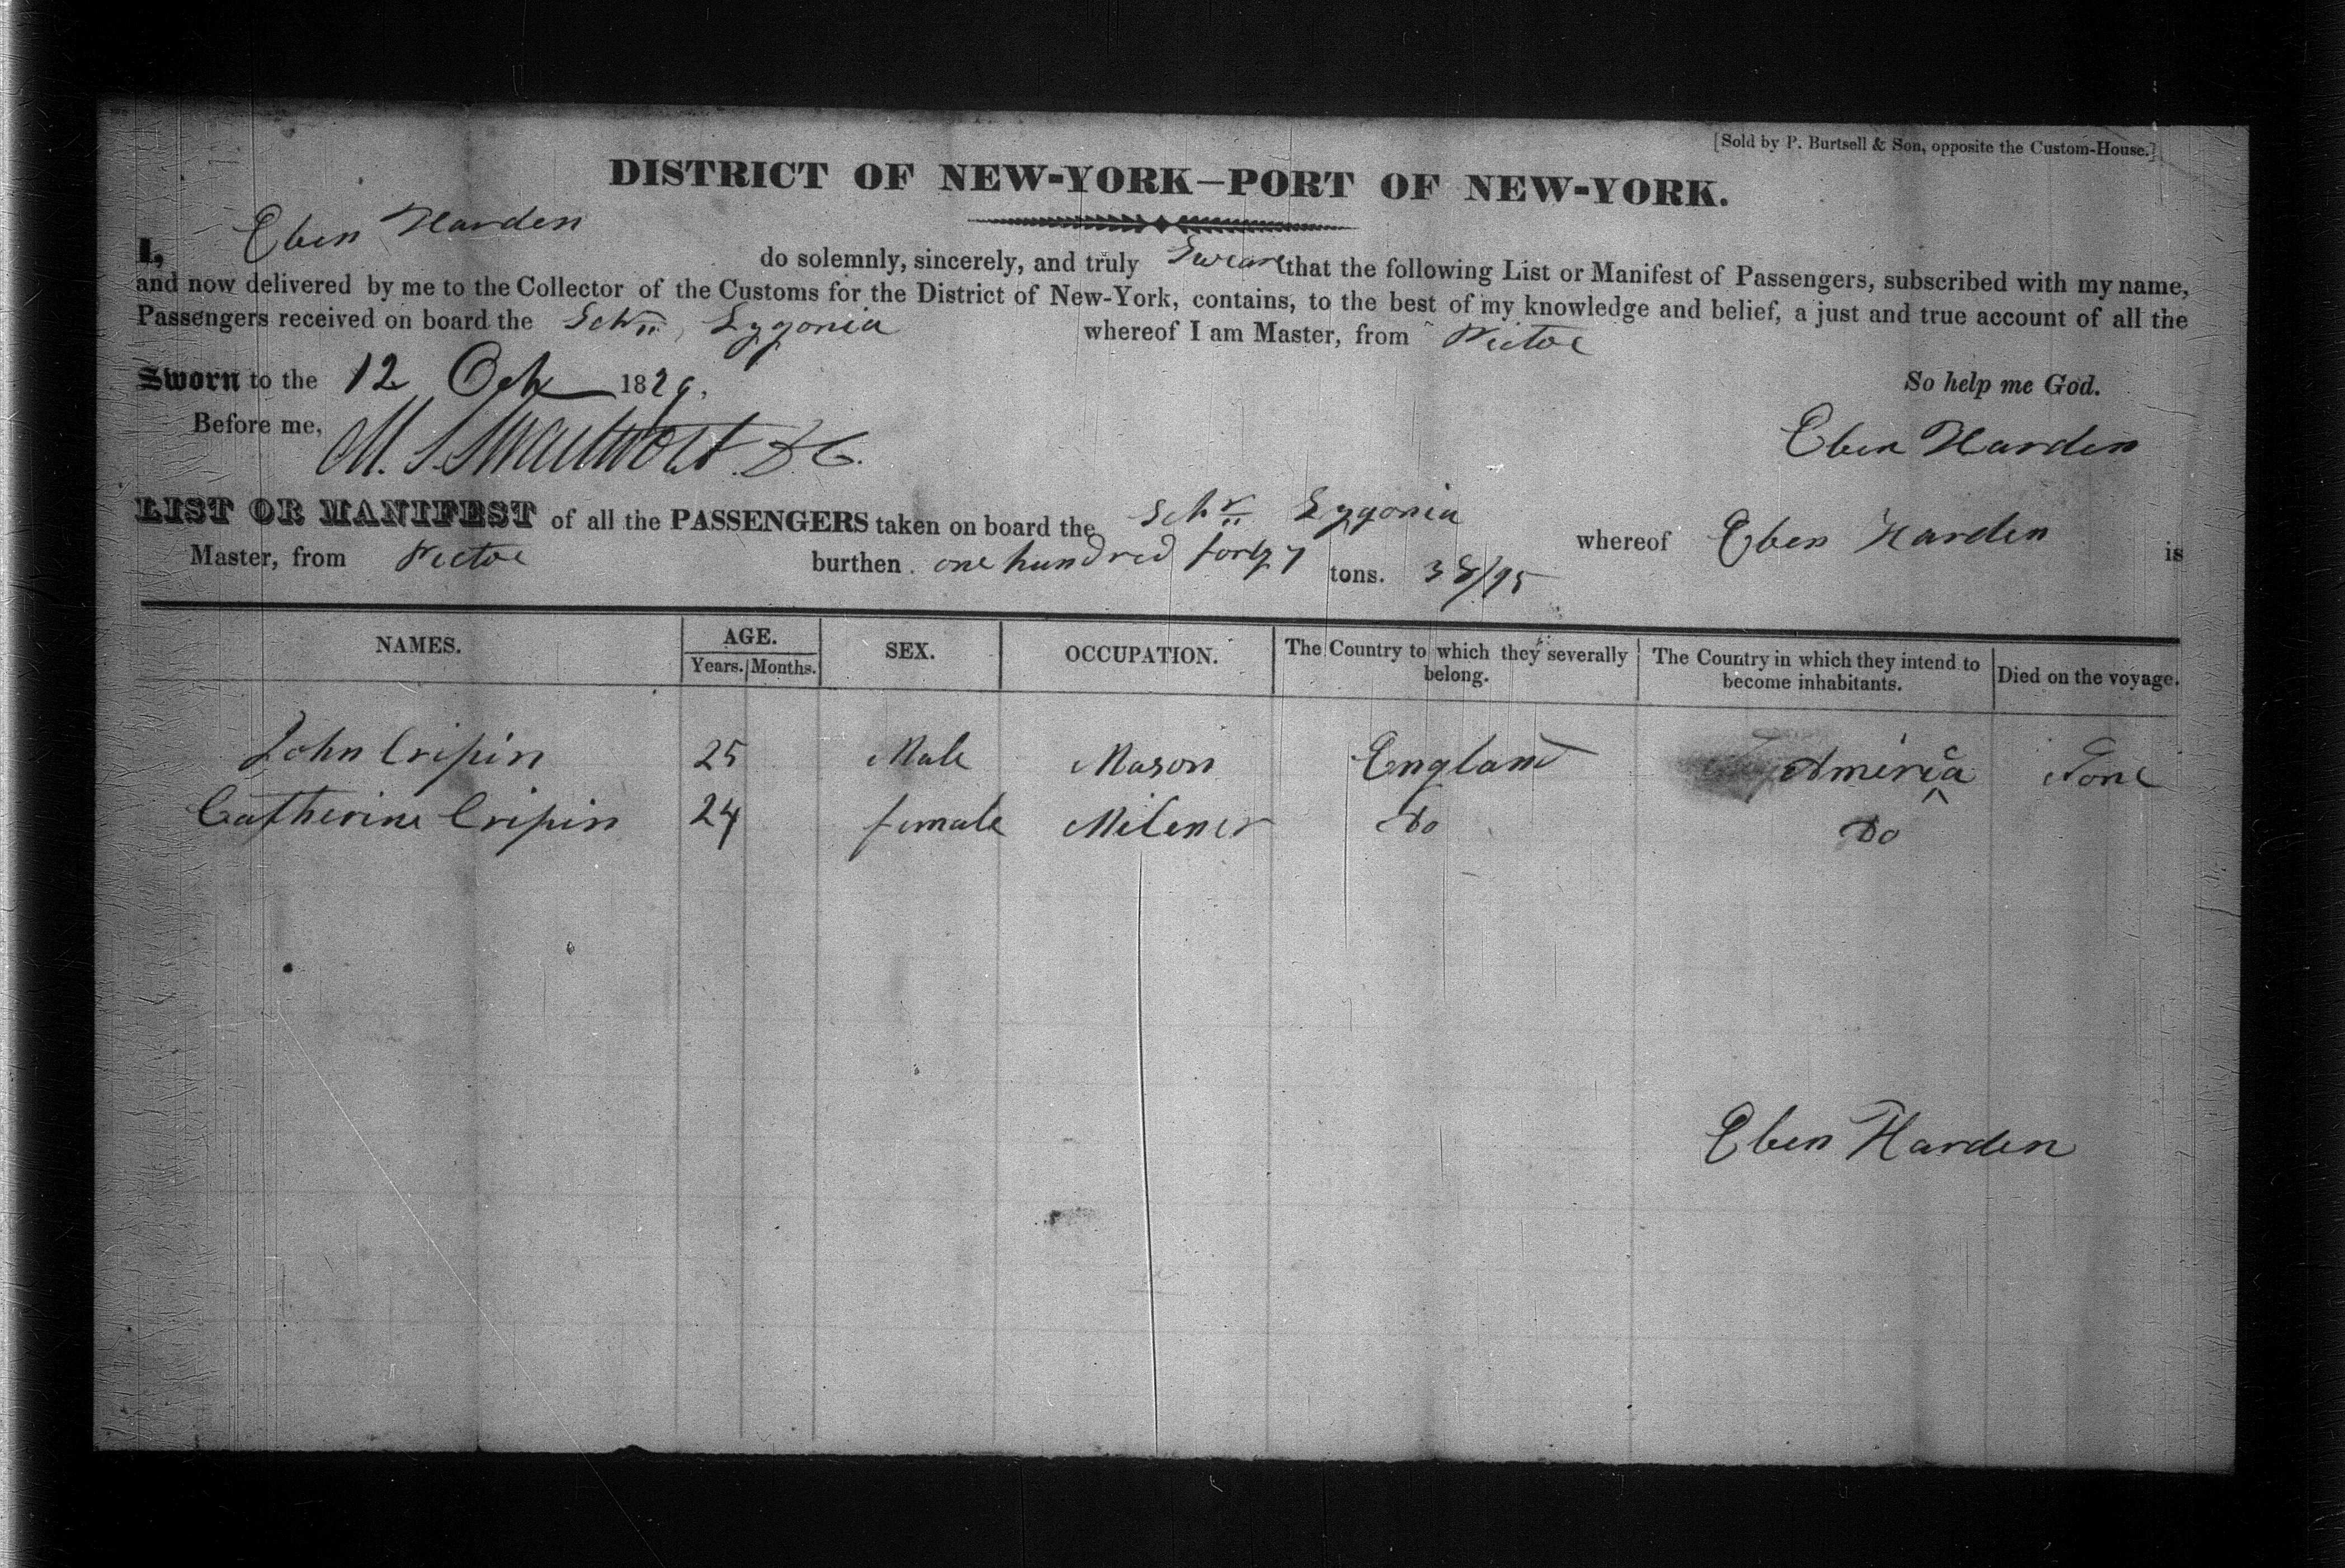 [Sold by P. Burtsell & Son, opposite the Custom-House.]
DISTRICT OF NEW-YORK—PORT OF NEW-YORK.
I, Eben Harden do solemnly, sincerely, and truly Swear that the following List or Manifest of Passengers, subscribed with my name,
and now delivered by me to the Collector of the Customs for the District of New-York, contains, to the best of my knowledge and belief, a just and true account of all the
Passengers received on board the Schr Lygonia whereof I am Master, from Pictoe
Sworn to the 12 Oct 1829. So help me God.
Before me, M. S. Swartwout D C. Eben Harden
LIST OR MANIFEST of all the PASSENGERS taken on board the Schr Lygonia whereof Eben Harden is
Master, from Pictoe burthen one hundred forty 7 tons. 38/95
NAMES. AGE. SEX. OCCUPATION. The Country to which they severally belong. The Country in which they intend to become inhabitants. Died on the voyage.
Years. Months.
John Cripin 25 Male Mason England America None
Catherine Cripin 24 female Milener Do Do
Eben Harden